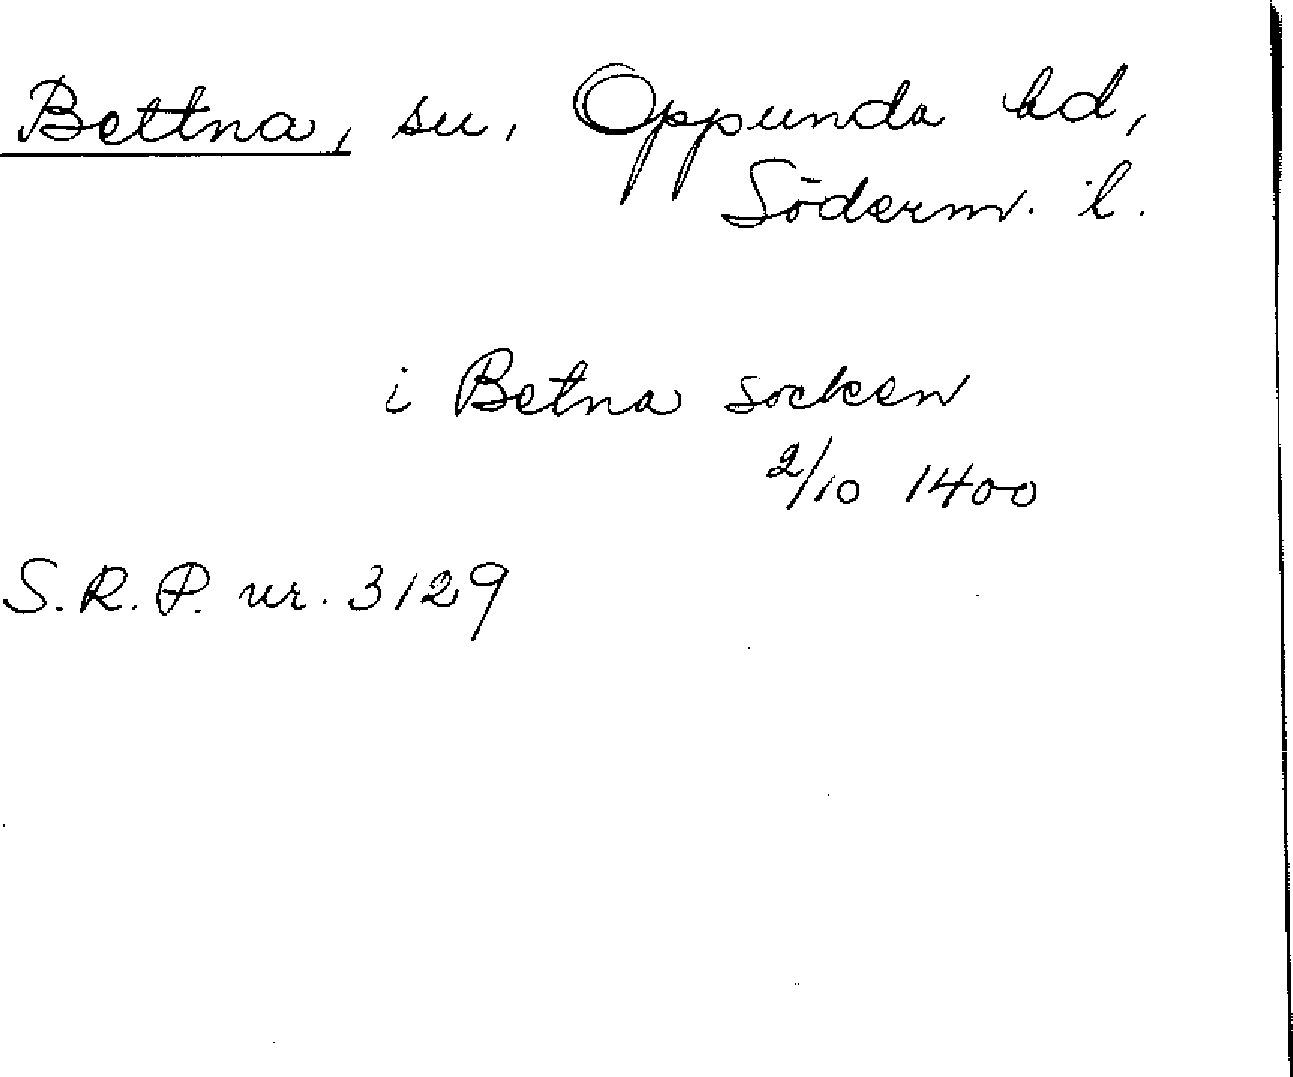 Bettna, sn, Oppunda hd,
Söderm. l.
i Betna socken
2/10 1400
S.R.P. nr. 3129